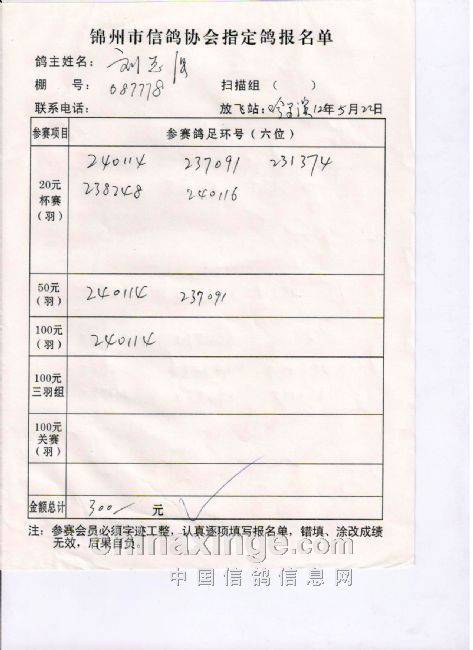 锦州市信鸽协会指定鸽报名单
鸽主姓名： 刘志
棚  号： 087778  扫描组（  ）
联系电话：  放飞站：哈尔滨 12年5月22日
参赛项目  参赛鸽足环号（六位）
20元杯赛（羽）  240114  237091  231374
238248  240116
50元（羽）  240114  237091
100元（羽）  240114
100元三羽组
100元关赛（羽）
金额总计  300  元
注：参赛会员必须字迹工整，认真逐项填写报名单，错填、涂改成绩
无效，后果自负。
chinaxinge.com
中国信鸽信息网